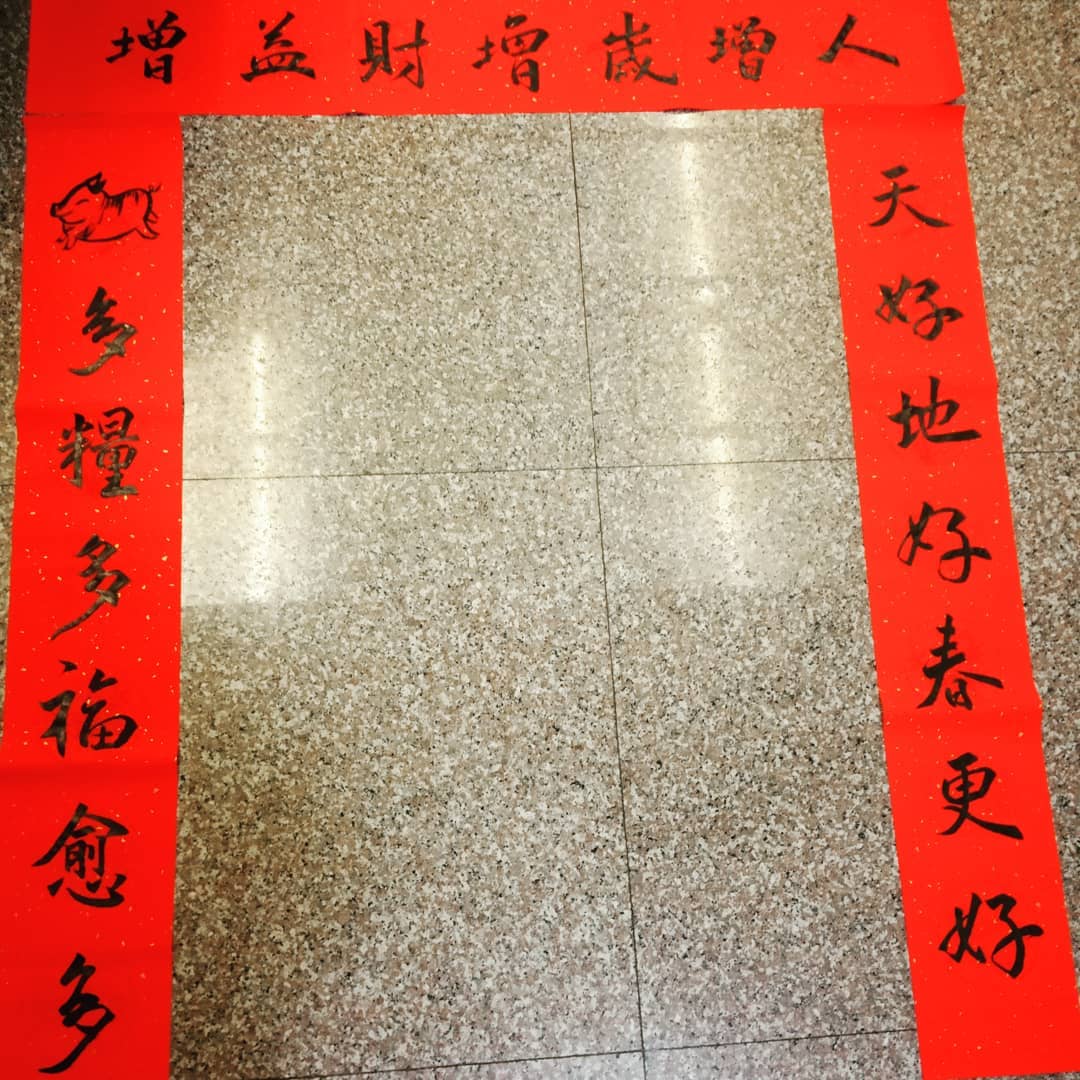 人增歲增財益增
天好地好春更好
多糧多福愈多